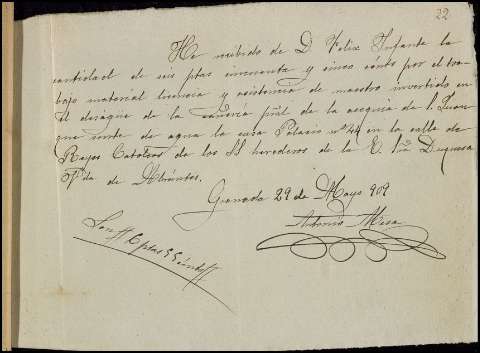 22
He recibido de D. Felix Infante la
cantidad de seis ptas cincuenta y cinco cents por el tra-
bajo material licencia y asistencia de maestro invertido en
el desagüe de la cañeria pñal de la acequia de S. Juan
que surte de agua la casa Palacio nº 34 en la calle de
Reyes Catolicos de los SS herederos de la E. Duquesa
Vda de Abrantes.
Granada 29 de Mayo 909
Antonio Mesa
Son 6 ptas 55 cents